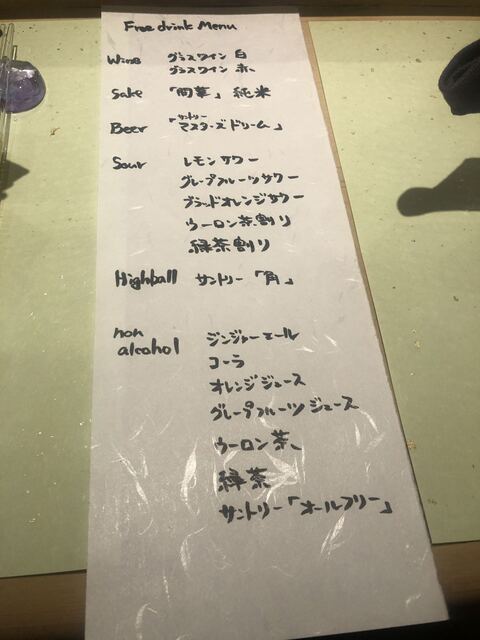 Free drink Menu
Wine グラスワイン 白
グラスワイン 赤
Sake 「開華」 純米
Beer 「サントリー マスターズドリーム」
Sour レモンサワー
グレープフルーツサワー
ブラッドオレンジサワー
ウーロン茶割り
緑茶割り
Highball サントリー 「角」
non alcohol ジンジャーエール
コーラ
オレンジジュース
グレープフルーツジュース
ウーロン茶
緑茶
サントリー「オールフリー」